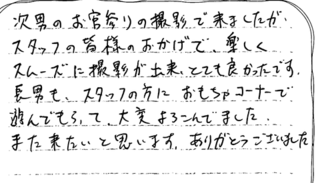 次男のお宮参りの撮影で来ましたが、
スタッフの皆様のおかげで、楽しく
スムーズに撮影が出来、とても良かったです。
長男も、スタッフの方に おもちゃコーナーで
遊んでもらって、大変よろこんでました。
また来たいと思います。ありがとうございました